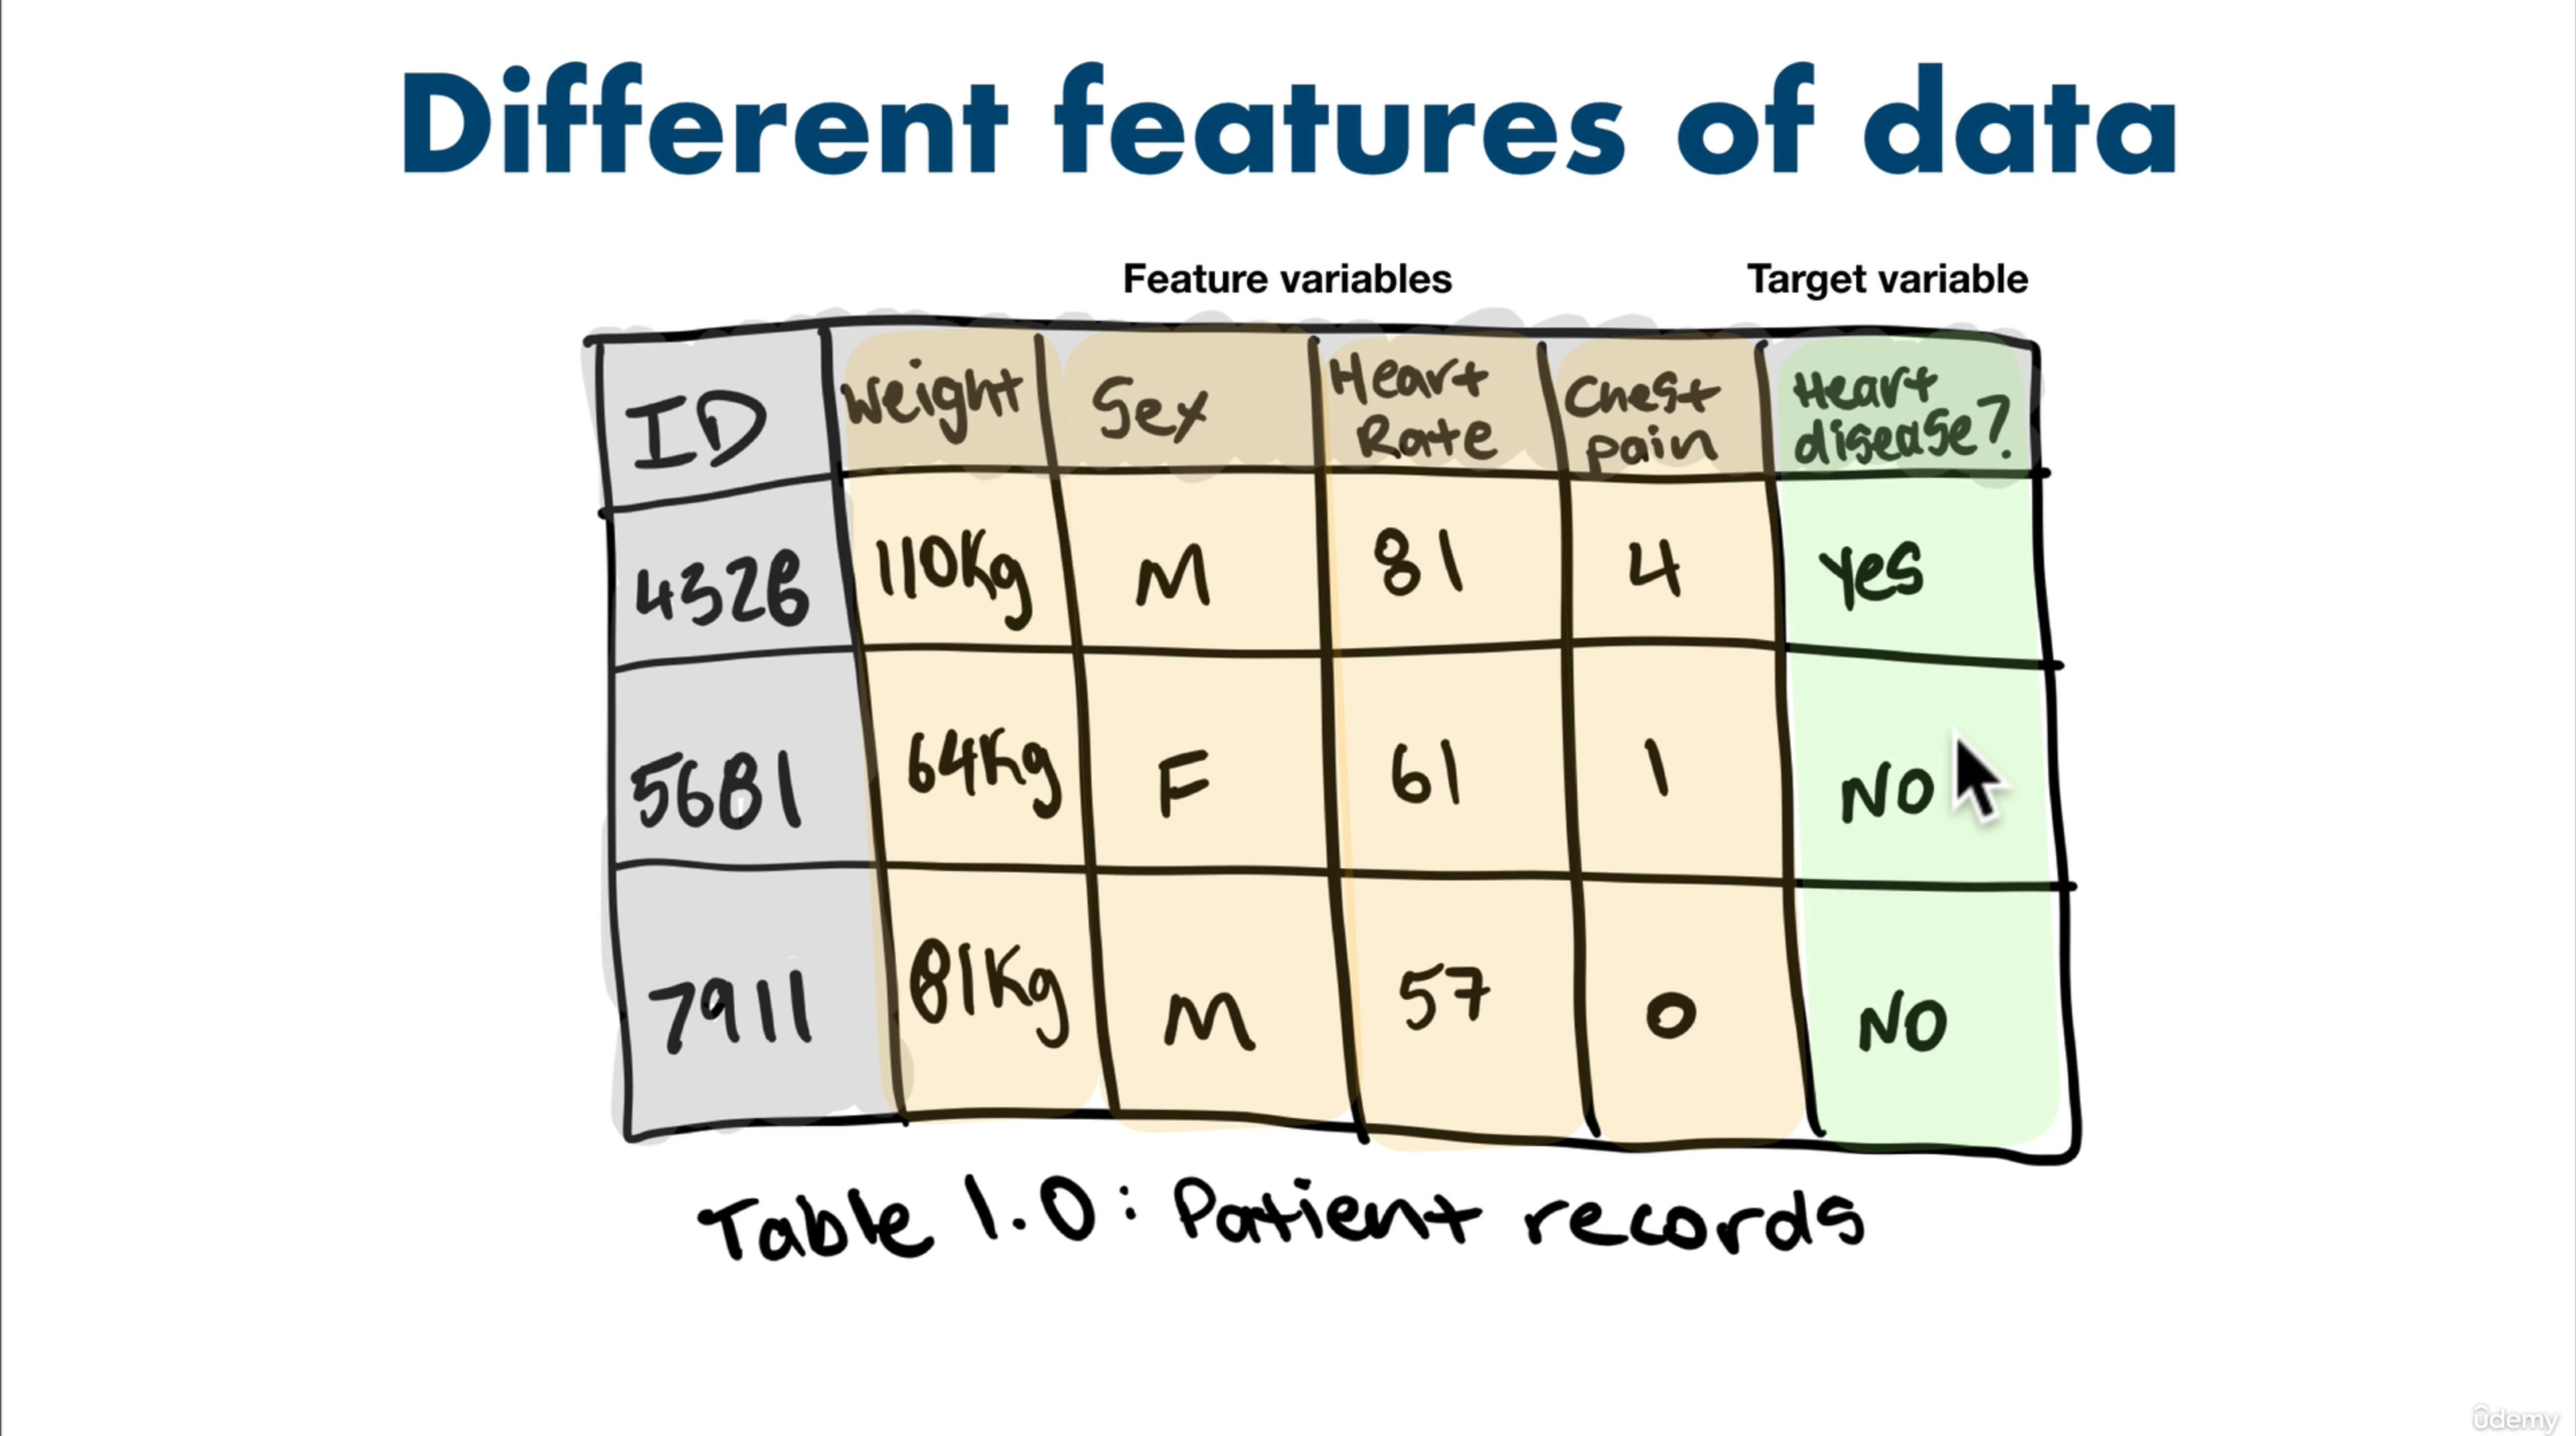 Different features of data
Feature variables Target variable
ID Weight Sex Heart Rate Chest pain Heart disease?
4326 110Kg M 81 4 Yes
5681 64Kg F 61 1 NO
7911 81Kg M 57 0 NO
Table 1.0: Patient records
ûdemy